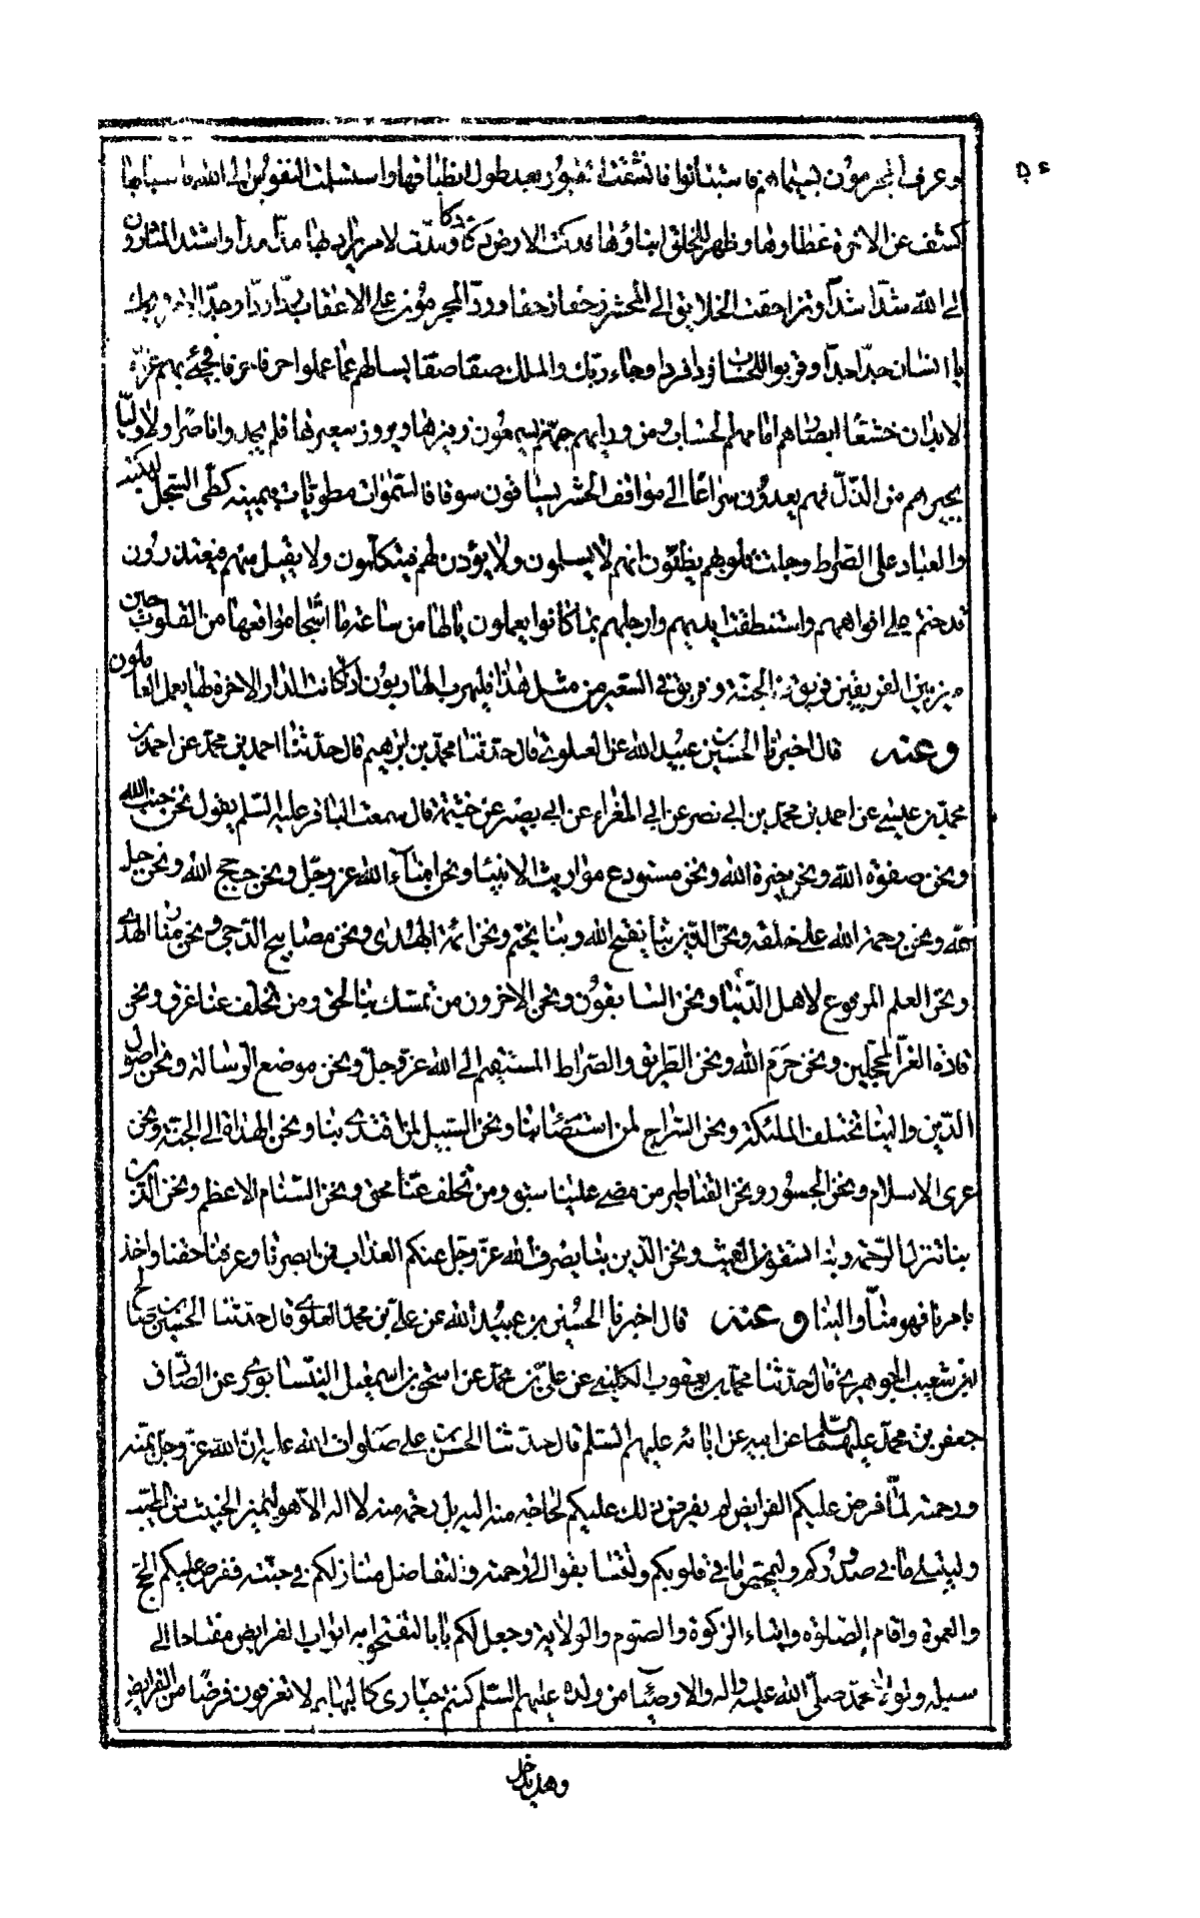 وعرف المجرمون بسيماهم فاستبانوا فانشقت القبور بعد طول انطباقها واستسلمت النفوس الى الله باسبابها
كشف عن الاخرة غطاؤها وظهر للخلق ابناؤها فدكت الارض دكا دكا ومدت لامر يراد بها مدا مدا واشتد المثارون
الى الله شدا شدا وتزاحفت الخلايق الى المحشر زحفا زحفا ورد المجرمون على الاعقاب ردا ردا وجد الامر ويحك
يا انسان جدا جدا وقربوا للحساب فردا فردا وجاء ربك والملك صفا صفا يسالهم عما عملوا حرفا حرفا فجئ بهم عراة
الابدان خشعا ابصارهم امامهم الحساب ومن ورائهم جهنم يسمعون زفيرها ويرون سعيرها فلم يجدوا ناصرا ولا وليا
يجيرهم من الذل فهم يعدون سراعا الى مواقف الحشر يساقون سوقا فالسموات مطويات بيمينه كطى السجل للكتب
والعباد على الصراط وجلت قلوبهم يظنون انهم لا يسلمون ولا يؤذن لهم فيتكلمون ولا يقبل منهم فيعتذرون
قد ختم على افواههم واستنطقت ايديهم وارجلهم بما كانوا يعملون يالها من ساعة ما اشجا مواقعها من القلوب حين
ميز بين الفريقين فريق في الجنة وفريق في السعير من مثل هذا فليهرب الهاربون اذا كانت الدار الاخرة لها يعمل العاملون
وعنه قال اخبرنا الحسين بن عبيد الله عن العلوى قال حدثنا محمد بن ابرهيم قال حدثنا احمد بن محمد عن احمد بن
محمد بن عيسى عن احمد بن محمد بن ابى نصر عن ابى المغراء عن ابى بصير عن خيثمة قال سمعت الباقر عليه السلم يقول نحن جنب الله
ونحن صفوة الله ونحن خيرة الله ونحن مستودع مواريث الانبيا ونحن امناء الله عز وجل ونحن حجج الله ونحن حبل
الله ونحن رحمة الله على خلقه ونحن الذين بنا يفتح الله وبنا يختم ونحن ائمة الهدى ونحن مصابيح الدجى ونحن منار الهدى
ونحن العلم المرفوع لاهل الدنيا ونحن السابقون ونحن الاخرون من تمسك بنا لحق ومن تخلف عنا غرق ونحن
قادة الغر المحجلين ونحن حرم الله ونحن الطريق والصراط المستقيم الى الله عز وجل ونحن موضع الرسالة ونحن اصول
الدين والينا تختلف الملئكة ونحن السراج لمن استضاء بنا ونحن السبيل لمن اقتدى بنا ونحن الهداة الى الجنة ونحن
عرى الاسلام ونحن الجسور ونحن القناطر من مضى علينا سبق ومن تخلف عنا محق ونحن السنام الاعظم ونحن الذين
بنا تنزل الرحمة وبنا تسقون الغيث ونحن الذين بنا يصرف الله عز وجل عنكم العذاب فمن ابصرنا وعرفنا وعرف حقنا واخذ
بامرنا فهو منا والينا وعنه قال اخبرنا الحسين بن عبيد الله عن على بن محمد العلوى قال حدثنا الحسين بن صالح
بن شعيب الجوهرى قال حدثنا محمد بن يعقوب الكلينى عن على بن محمد عن اسحق بن اسمعيل النيسابورى عن الصادق
جعفر بن محمد عليهما السلم عن ابيه عن ابائه عليهم السلم قال حدثنا الحسن بن على صلوات الله عليه ان الله عز وجل بمنه
ورحمته لما فرض عليكم الفرايض لم يفرض ذلك عليكم لحاجة منه اليه بل رحمة منه لا اله الا هو ليميز الخبيث من الطيب
وليبتلى ما في صدوركم وليمحص ما في قلوبكم ولتتسابقوا الى رحمته ولتتفاضل منازلكم في جنته ففرض عليكم الحج
والعمرة واقام الصلوة وايتاء الزكوة والصوم والولاية وجعل لكم بابا لتفتحوا به ابواب الفرايض مفتاحا الى
سبيله ولولا محمد صلى الله عليه واله والاوصياء من ولده عليهم السلم كنتم حيارى كالبهايم لا تعرفون فرضا من الفرايض
وهل يدخل